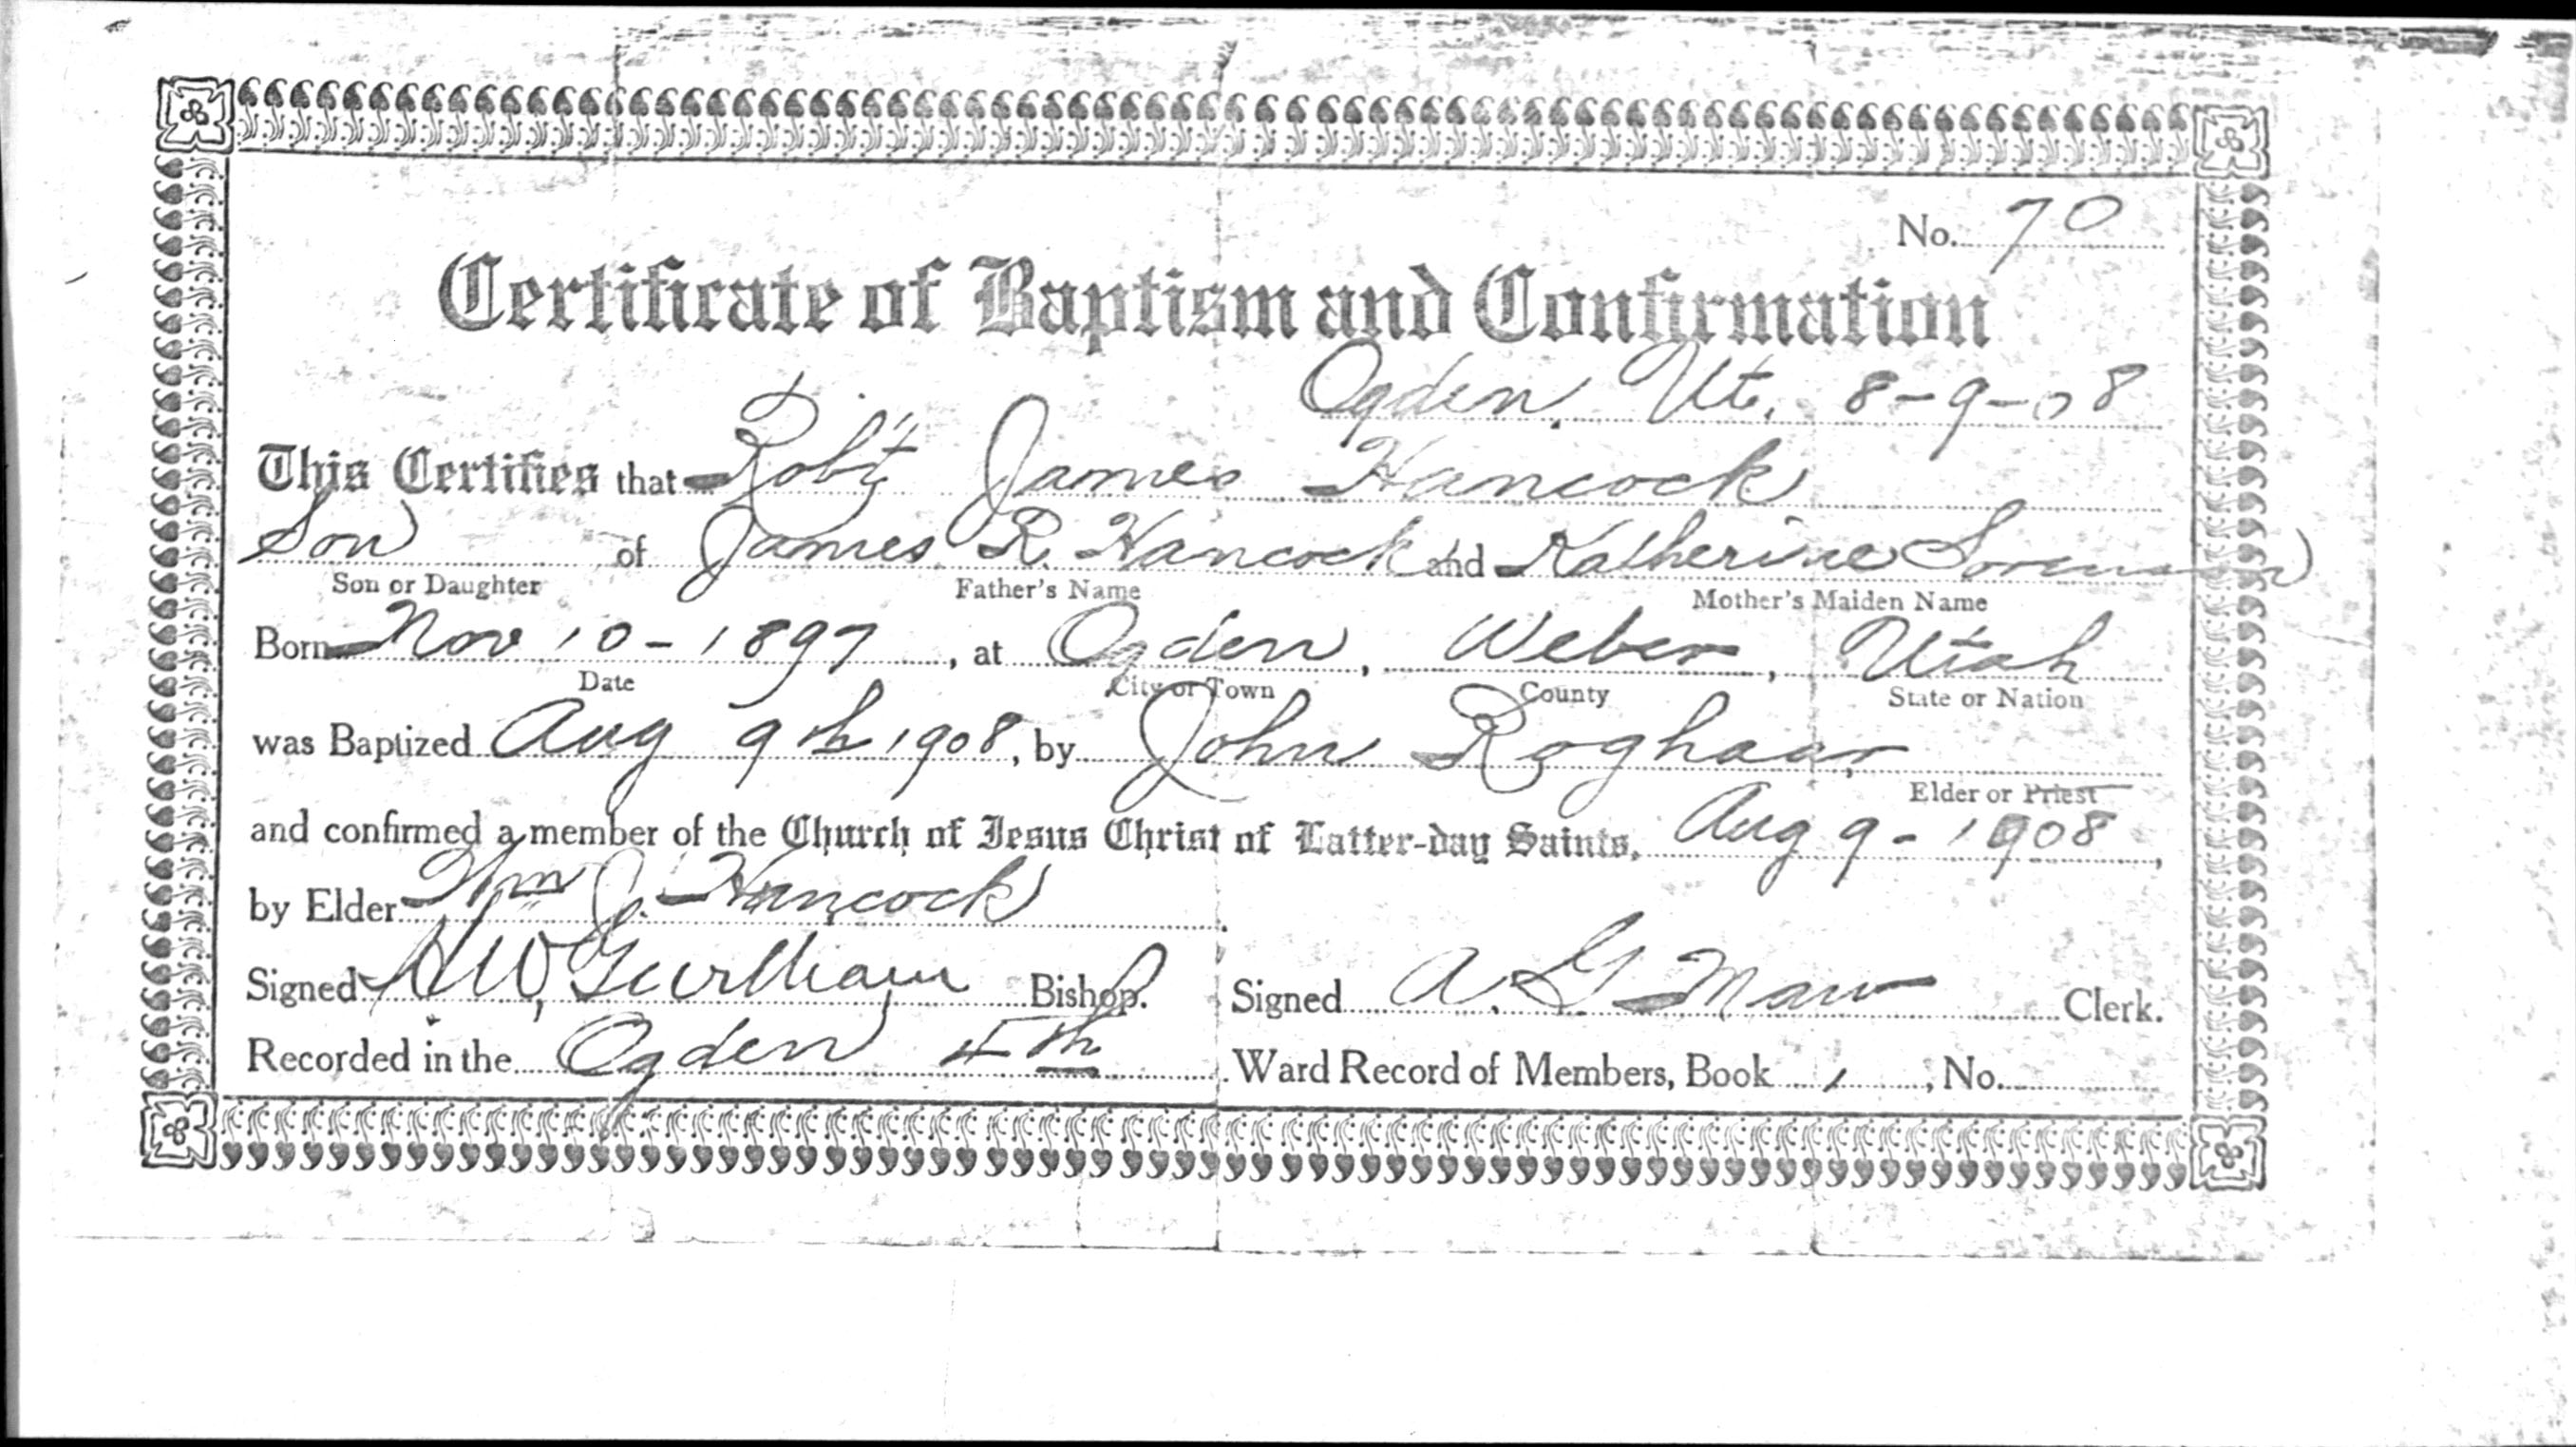 No. 70
Certificate of Baptism and Confirmation
Ogden, Ut. 8-9-08
This Certifies that Robt James Hancock
Son of James R. Hancock and Katherine
Son or Daughter Father's Name Mother's Maiden Name
Born Nov 10-1897, at Ogden, Weber, Utah
Date City or Town County State or Nation
was Baptized Aug 9th 1908, by John Roghaar
Elder or Priest
and confirmed a member of the Church of Jesus Christ of Latter-day Saints, Aug 9-1908,
by Elder Wm J. Hancock.
Signed H W Gwilliam Bishop. Signed A. G Maw Clerk.
Recorded in the Ogden 4th Ward Record of Members, Book 1, No.